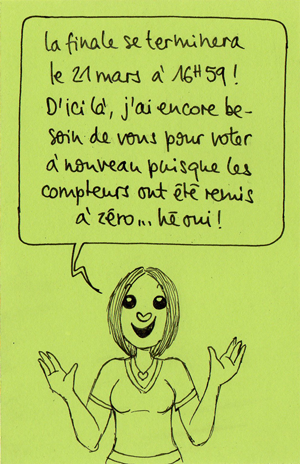 la finale se terminera
le 21 mars à 16H59 !
D'ici là, j'ai encore be-
soin de vous pour voter
à nouveau puisque les
compteurs ont été remis
à zéro... hé oui !